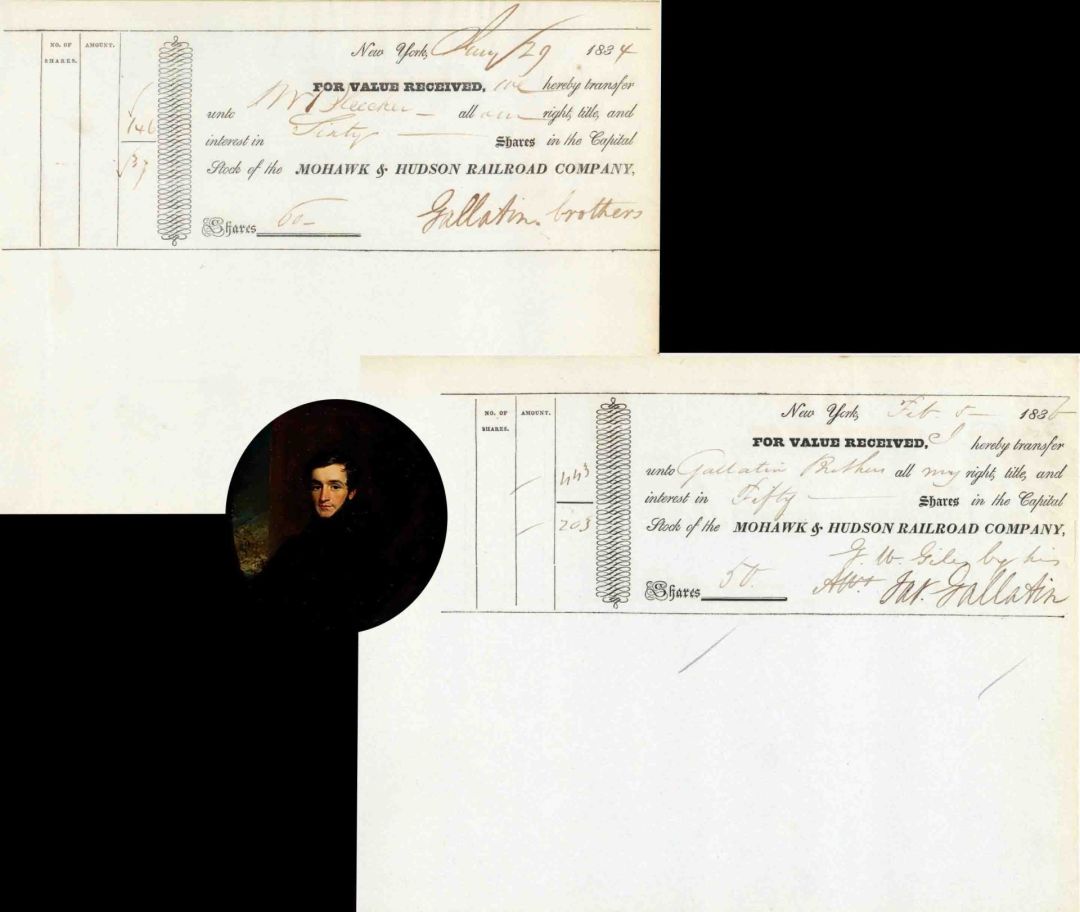 NO. OF SHARES. AMOUNT.
New York, Jany 29 1834
FOR VALUE RECEIVED, we hereby transfer
unto W Bleecker all our right, title, and
interest in Sixty Shares in the Capital
Stock of the MOHAWK & HUDSON RAILROAD COMPANY,
Shares 60
Gallatin brothers
NO. OF SHARES. AMOUNT.
443
203
New York, Feb 5 1836
FOR VALUE RECEIVED, I hereby transfer
unto Gallatin Brothers all my right, title, and
interest in Fifty Shares in the Capital
Stock of the MOHAWK & HUDSON RAILROAD COMPANY,
G. W. Giles by his
Shares 50. Att. Jas. Gallatin